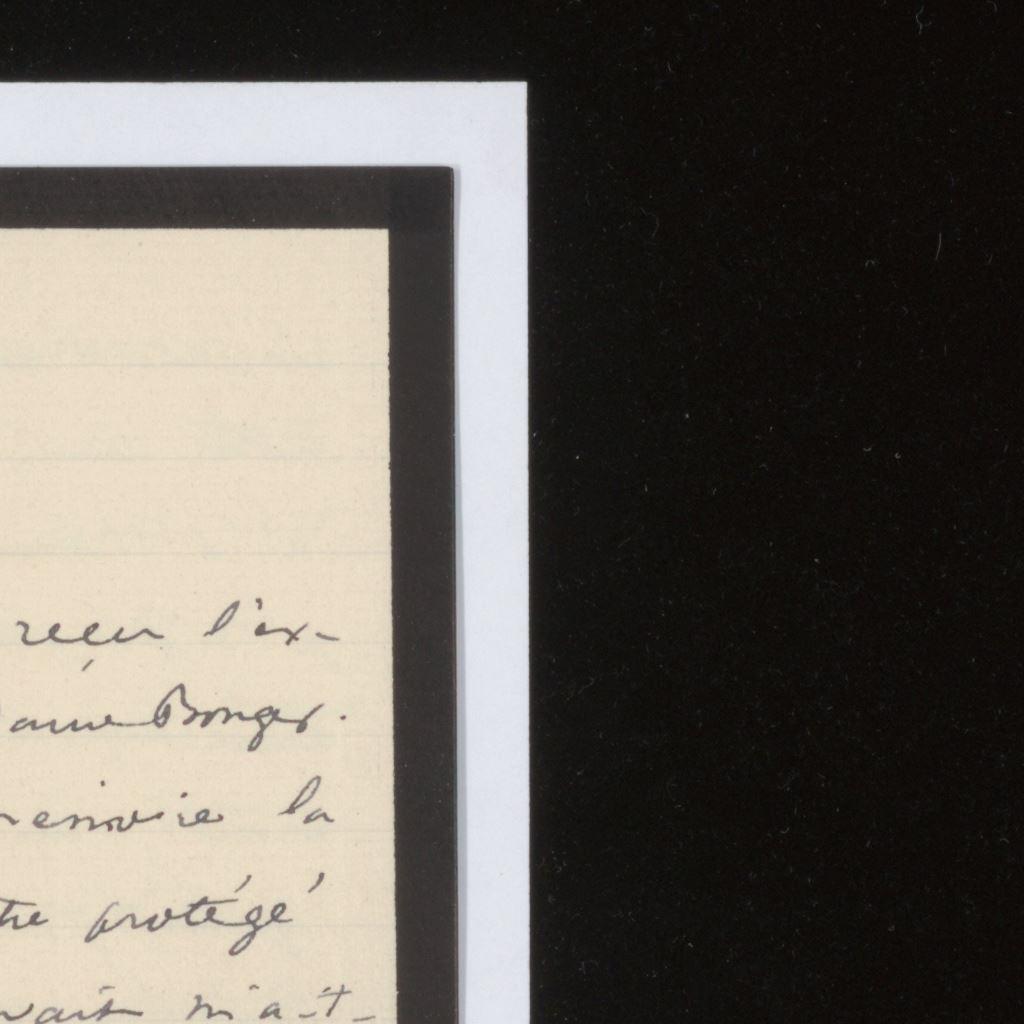 reçu l'ex-
ame Bonger.
renvoie la
tre protégé
vait m'a-t-